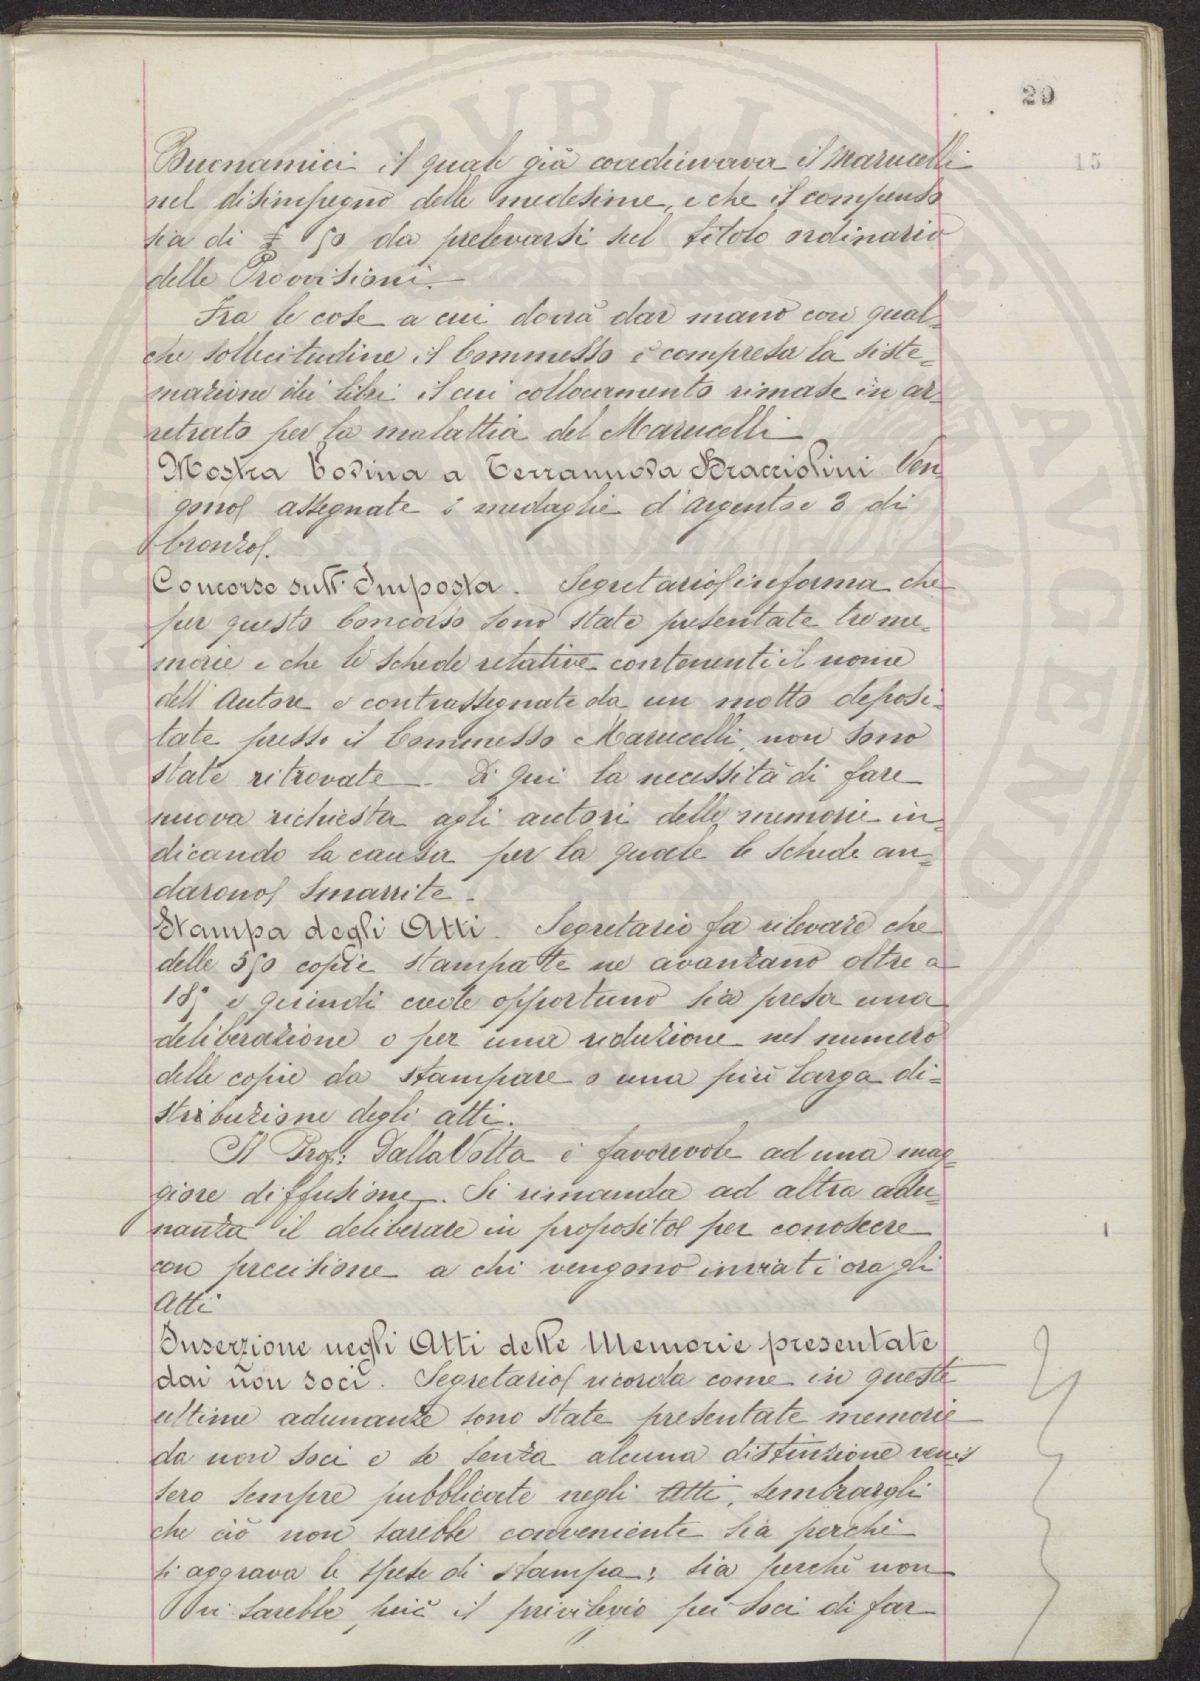 29
15
Buonamici il quale già coadiuvava il Marucelli
nel disimpegno delle medesime, e che il compenso
sia di £ 50 da prelevarsi sul titolo ordinario
delle Provvisioni.
Fra le cose a cui dovrà dar mano con qual=
che sollecitudine il Commesso è compresa la siste=
mazione dei libri il cui collocamento rimase in ar=
retrato per la malattia del Marucelli
Mostra Bovina a Terranuova Bracciolini Ven=
gono assegnate 3 medaglie d'argento e 3 di
bronzo.
Concorso sull'Imposta. Segretario informa che
per questo Concorso sono state presentate tre me=
morie e che le schede relative contenenti il nome
dell'Autore e contrassegnate da un motto deposi=
tate presso il Commesso Marucelli, non sono
state ritrovate. Di qui la necessità di fare
nuova richiesta agli autori delle memorie in=
dicando la causa per la quale le schede an=
darono smarrite.
Stampa degli Atti. Segretario fa rilevare che
delle 350 copie stampate ne avanzano oltre a
185 e quindi crede opportuno sia presa una
deliberazione o per una riduzione nel numero
delle copie da stampare o una più larga di=
stribuzione degli atti.
Il Prof: Dalla Volta è favorevole ad una mag=
giore diffusione. Si rimanda ad altra adu=
nanza il deliberare in proposito per conoscere
con precisione a chi vengono inviati ora gli
Atti
Inserzione negli Atti delle Memorie presentate
dai non soci. Segretario ricorda come in queste
ultime adunanze sono state presentate memorie
da non soci e se senza alcuna distinzione venis
sero sempre pubblicate negli Atti, sembrargli
che ciò non sarebbe conveniente sia perchè
si aggrava le spese di stampa; sia perchè non
vi sarebbe più il privilegio pei Soci di far
PUBLICAE
AVGENDAE